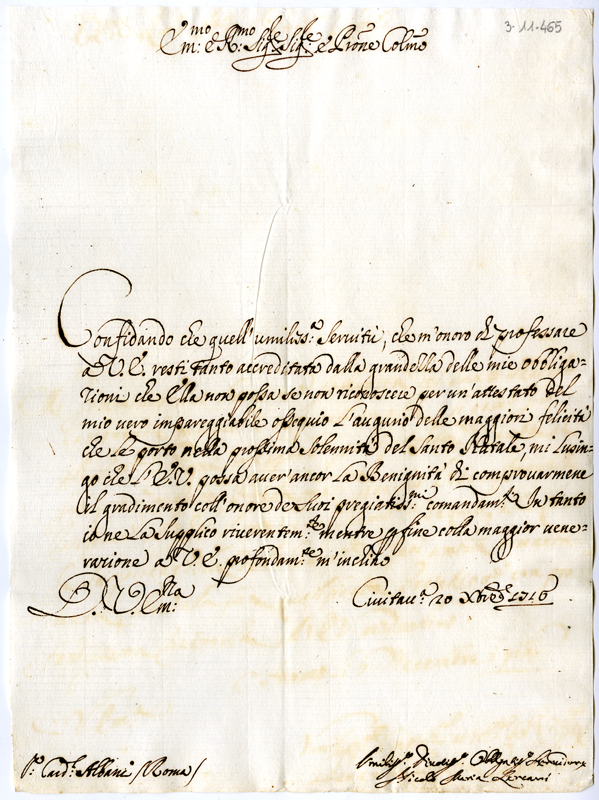 3-11-465
Em:mo e R:mo Sig:re Sig:re e Prone Colmo
Confidando che quell'umiliss:a servitù, che m'onoro di professare
a V.E. resti tanto accreditata dalla grandezza delle mie obbliga=
zioni che Ella non possa se non riconoscere per un'attestato del
mio vero impareggiabile ossequio l'augurio delle maggiori felicità
che Le porto nella prossima Solennità del Santo Natale, mi lusin=
go che l'E.V. possa aver'ancor la Benignità di comprovarmene
il gradimento coll'onore de suoi pregiatiss:mi comandam:ti In tanto
io ne La supplico riverentem:te mentre p fine colla maggior vene=
razione a V.E. profondam:te m'inchino
D. V. Em:za
Civitau:a 20 Xbre 1716
S:r Card:l Albani /Roma/
Umiliss:o Divotiss:o Obbligatiss:o Servidore
Nicolò Maria Lercari